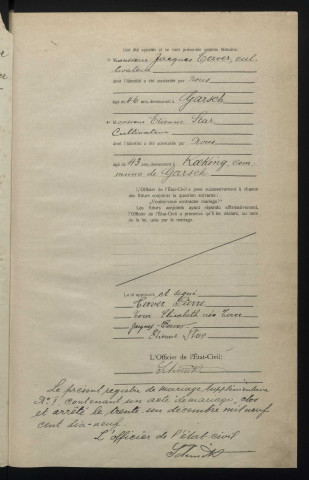 Ont été appelés et se sont présentés comme témoins:
1° Monsieur Jacques Terver, cul-
tivateur
dont l'identité a été constatée par nous
âgé de 46 ans, demeurant à Garsch
2° Monsieur Etienne Star
Cultivateur
dont l'identité a été constatée par Nous
âgé de 43 ans, demeurant à Kœking com-
mune de Garsch
L'Officier de l'État-Civil a posé successivement à chacun
des futurs conjoints la question suivante:
„Voulez-vous contracter mariage?"
Les futurs conjoints ayant répondu affirmativement,
l'Officier de l'État-Civil a prononcé qu'ils étaient, au nom
de la loi, unis par le mariage.
Lu et approuvé et signé
Terver Pierre
Elisabeth née
Jacques Terver
Etienne Star
L'Officier de l'État-Civil:
Schmitt
Le présent registre de mariage supplémentaire
No 1, contenant un acte de mariage, clos
et arrêté le trente un décembre mil neuf
cent dix-neuf.
L'officier de l'état civil
Schmitt